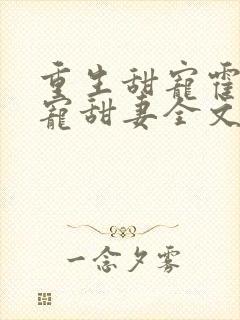 重生甜寵霍
寵甜妻全文
一念夕雾